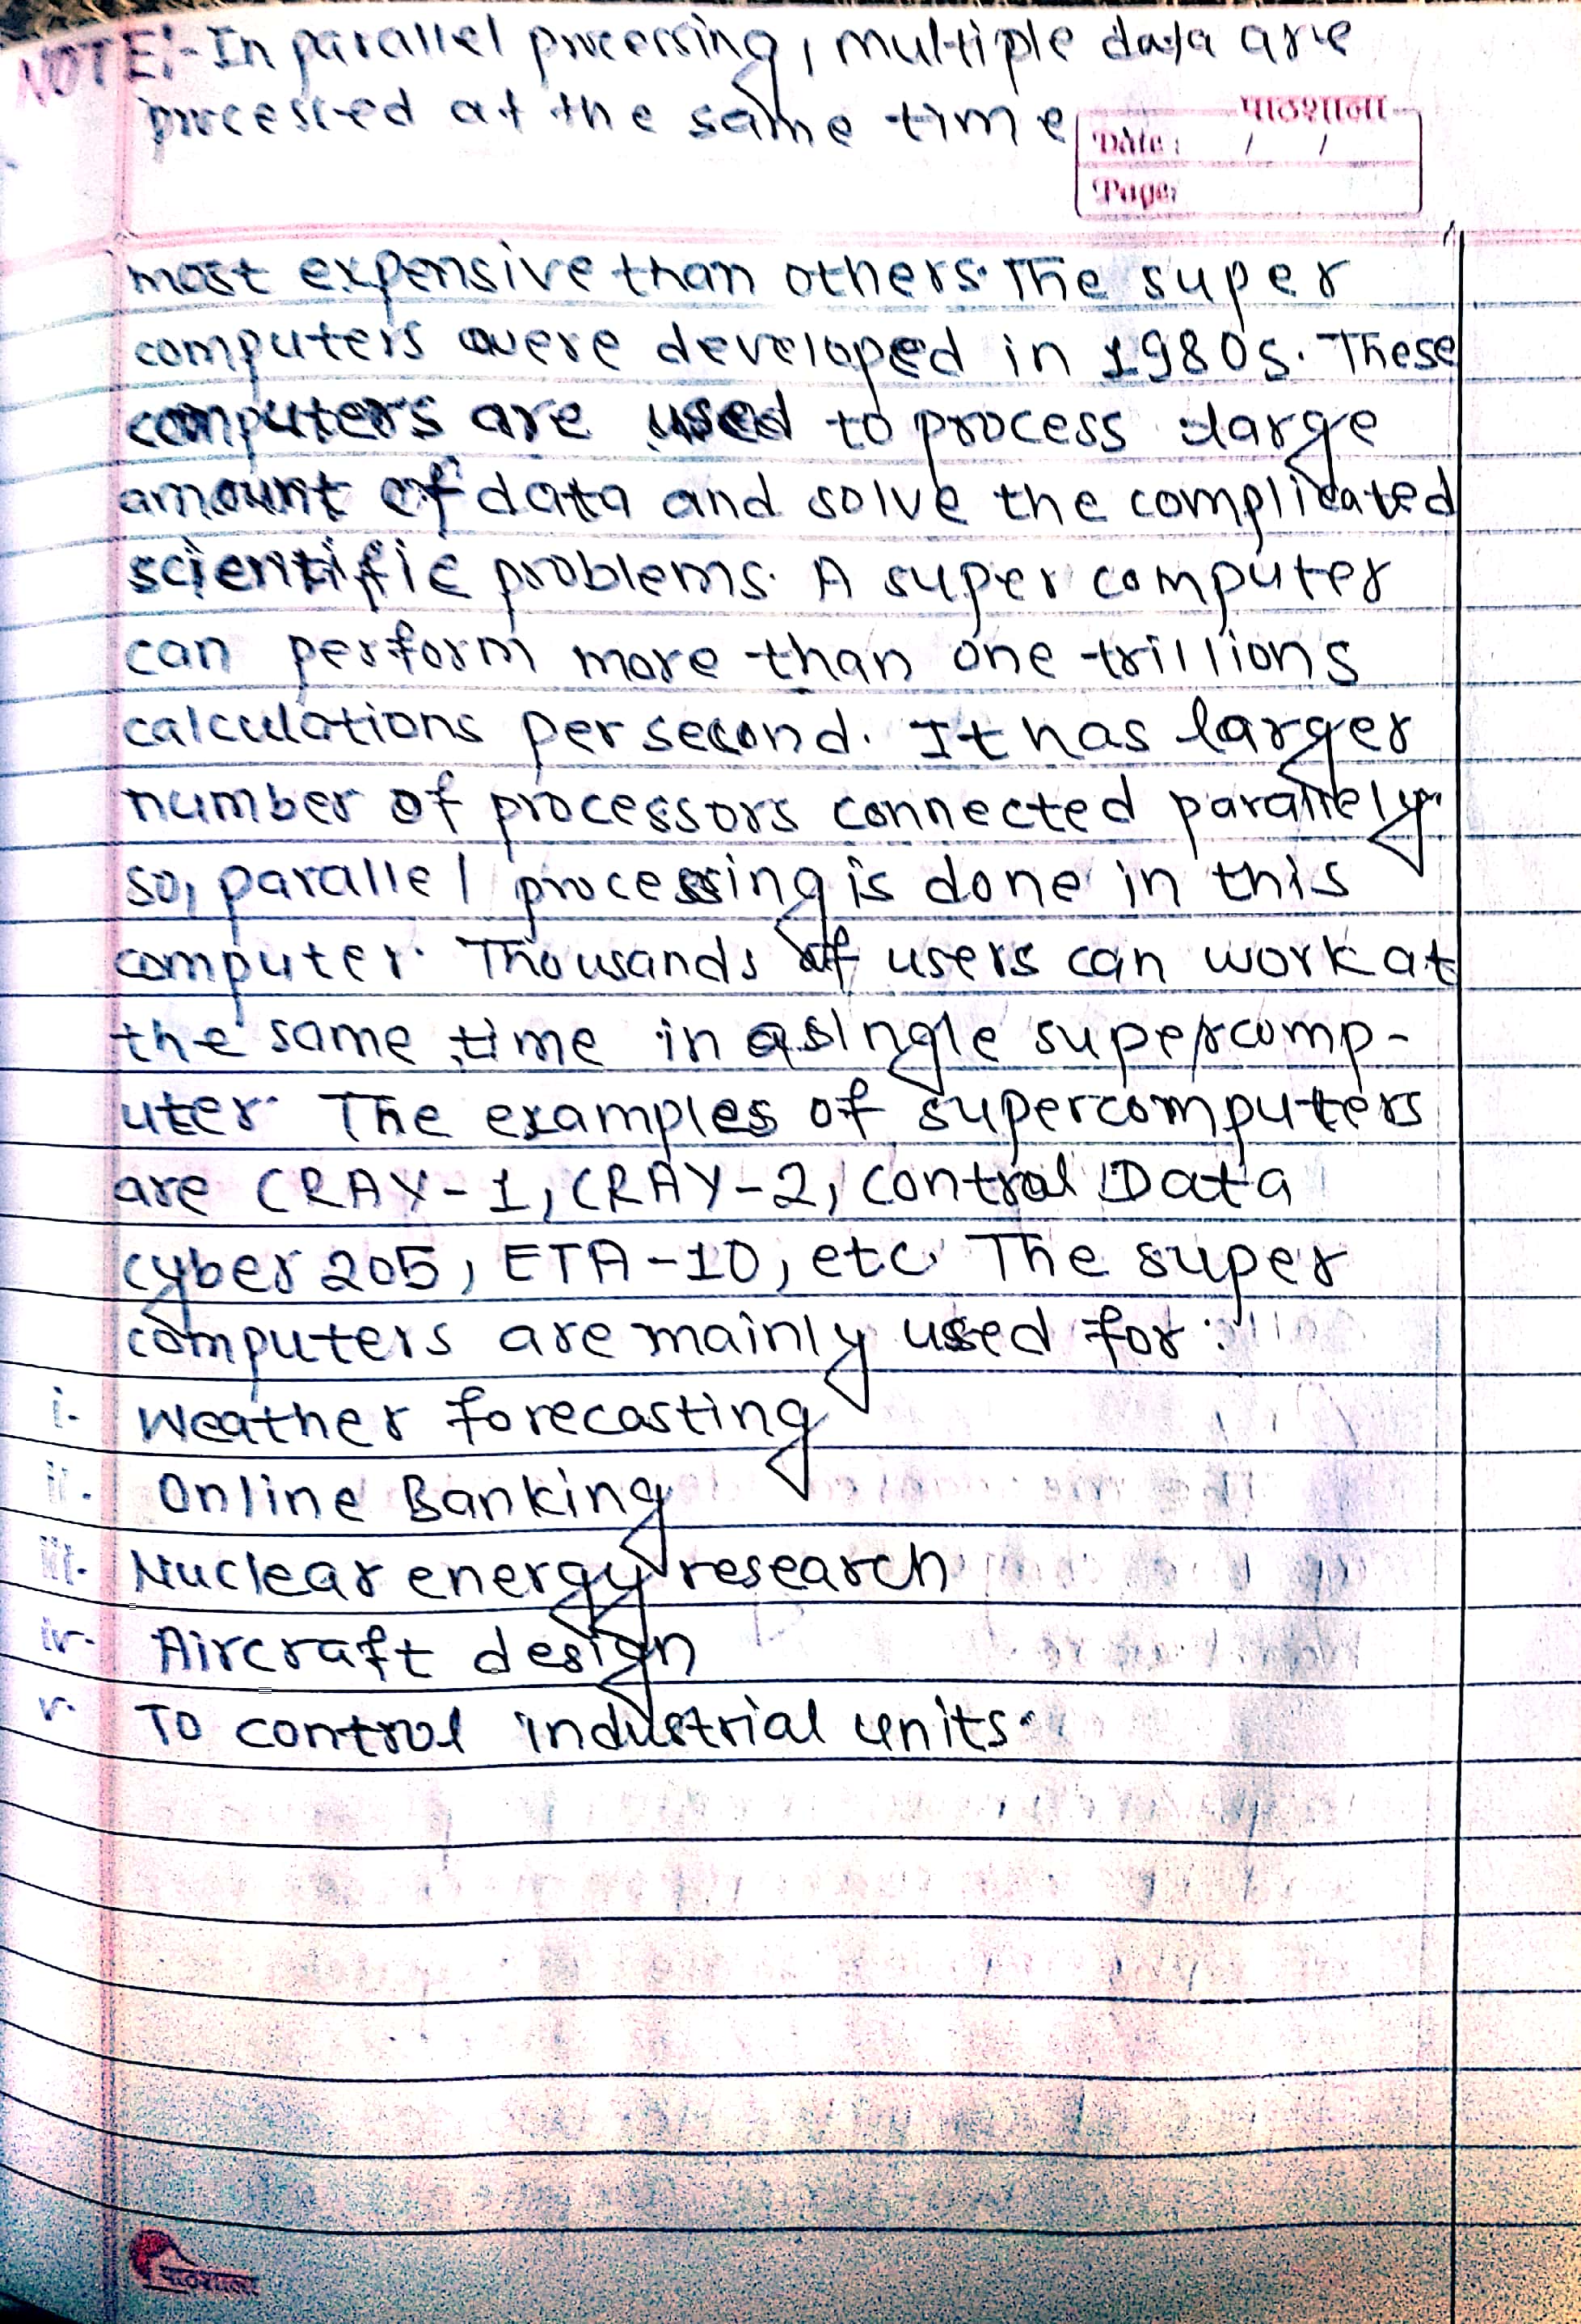 NOTE:- In parallel processing, multiple data are
processed at the same time
पाठशाला
Date : / /
Page:
most expensive than others. The super
computers were developed in 1980s. These
computers are used to process large
amount of data and solve the complicated
scientific problems. A super computer
can perform more than one trillions
calculations per second. It has larger
number of processors connected parallely.
so, parallel processing is done in this
computer. Thousands of users can work at
the same time in a single supercomp-
uter. The examples of supercomputers
are CRAY-1, CRAY-2, Control Data
cyber 205, ETA-10, etc. The super
computers are mainly used for:
i. Weather forecasting
ii. Online Banking
iii. Nuclear energy research
iv. Aircraft design
v. To control industrial units.
पाठशाला